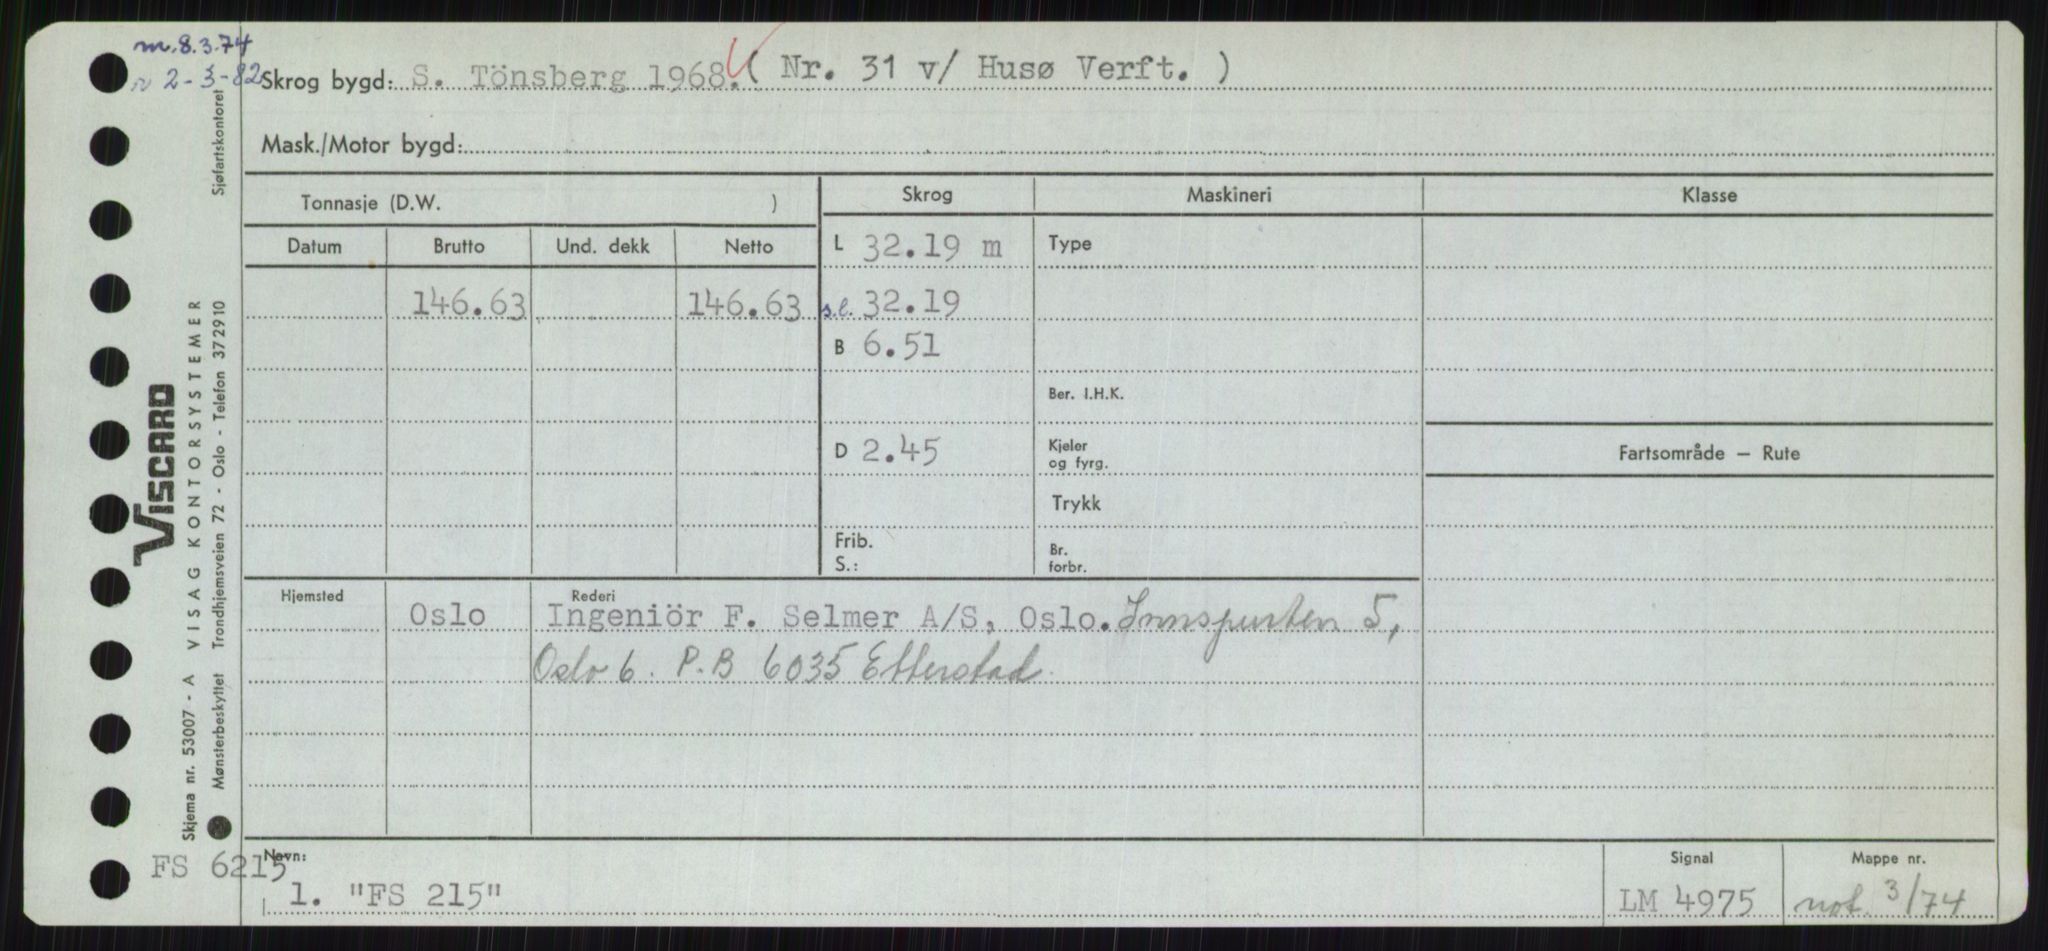 m. 8.3.74
n 2-3-82
Skrog bygd: S. Tönsberg 1968. ( Nr. 31 v/ Husø Verft. )
Mask./Motor bygd:
Tonnasje (D.W. )
Skrog Maskineri Klasse
Datum Brutto Und. dekk Netto
L 32.19 m Type
146.63 146.63 s.l. 32.19
B 6.51
Ber. I.H.K.
D 2.45 Kjeler og fyrg.
Fartsområde — Rute
Trykk
Frib.
S.:
Br. forbr.
Hjemsted Rederi
Oslo Ingeniör F. Selmer A/S, Oslo. Innspurten 5,
Oslo 6. P.B 6035 Etterstad.
Navn: Signal Mappe nr.
FS 6215
1. "FS 215" LM 4975 not. 3/74
VISCARD
Skjema nr. 53007 - A VISAG KONTORSYSTEMER
Mønsterbeskyttet Trondhjemsveien 72 - Oslo - Telefon 372910 Sjøfartskontoret